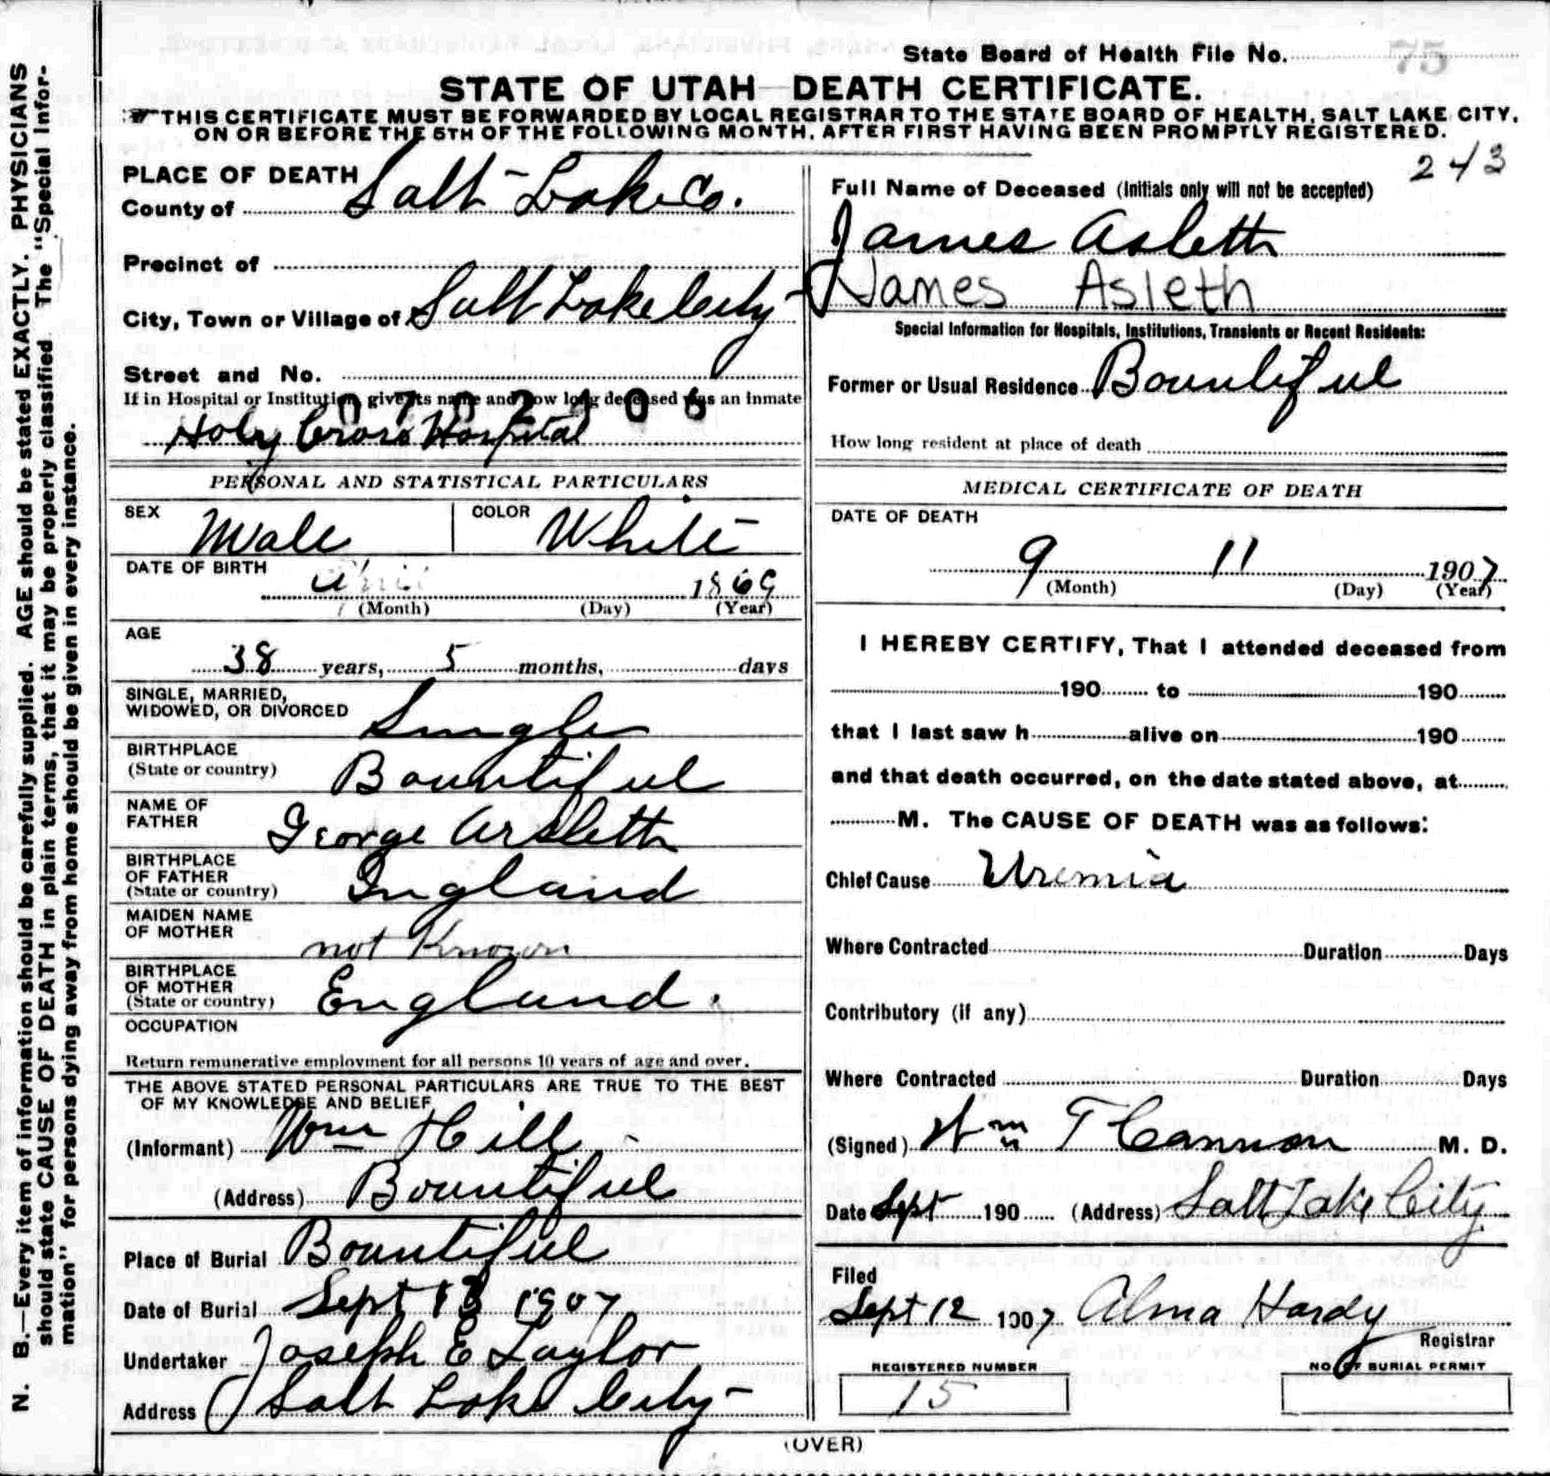 State Board of Health File No. 75
STATE OF UTAH—DEATH CERTIFICATE.
THIS CERTIFICATE MUST BE FORWARDED BY LOCAL REGISTRAR TO THE STATE BOARD OF HEALTH, SALT LAKE CITY,
ON OR BEFORE THE 5TH OF THE FOLLOWING MONTH, AFTER FIRST HAVING BEEN PROMPTLY REGISTERED.
243
N. B.—Every item of information should be carefully supplied. AGE should be stated EXACTLY. PHYSICIANS
should state CAUSE OF DEATH in plain terms, that it may be properly classified. The "Special Infor-
mation" for persons dying away from home should be given in every instance.
PLACE OF DEATH
County of Salt Lake Co.
Precinct of
City, Town or Village of Salt Lake City
Street and No.
If in Hospital or Institution, give its name and how long deceased was an Inmate
0702406
Holy Cross Hospital
PERSONAL AND STATISTICAL PARTICULARS
SEX Male COLOR White
DATE OF BIRTH April 1869
(Month) (Day) (Year)
AGE
38 years, 5 months, days
SINGLE, MARRIED,
WIDOWED, OR DIVORCED Single
BIRTHPLACE
(State or country) Bountiful
NAME OF
FATHER George Arsletth
BIRTHPLACE
OF FATHER
(State or country) England
MAIDEN NAME
OF MOTHER not Known
BIRTHPLACE
OF MOTHER
(State or country) England.
OCCUPATION
Return remunerative employment for all persons 10 years of age and over.
THE ABOVE STATED PERSONAL PARTICULARS ARE TRUE TO THE BEST
OF MY KNOWLEDGE AND BELIEF
(Informant) Wm Hill
(Address) Bountiful
Place of Burial Bountiful
Date of Burial Sept 13 1907
Undertaker Joseph E Taylor
Address Salt Lake City
Full Name of Deceased (Initials only will not be accepted)
James Asleth
James Asleth
Special Information for Hospitals, Institutions, Transients or Recent Residents:
Former or Usual Residence Bountiful
How long resident at place of death
MEDICAL CERTIFICATE OF DEATH
DATE OF DEATH
9 11 1907
(Month) (Day) (Year)
I HEREBY CERTIFY, That I attended deceased from
190 to 190
that I last saw h alive on 190
and that death occurred, on the date stated above, at
M. The CAUSE OF DEATH was as follows:
Chief Cause Uremia
Where Contracted Duration Days
Contributory (if any)
Where Contracted Duration Days
(Signed) Wm T Cannon M. D.
Date Sept 190 (Address) Salt Lake City
Filed
Sept 12 1907 Alma Hardy
Registrar
REGISTERED NUMBER NO. OF BURIAL PERMIT
15
(OVER)